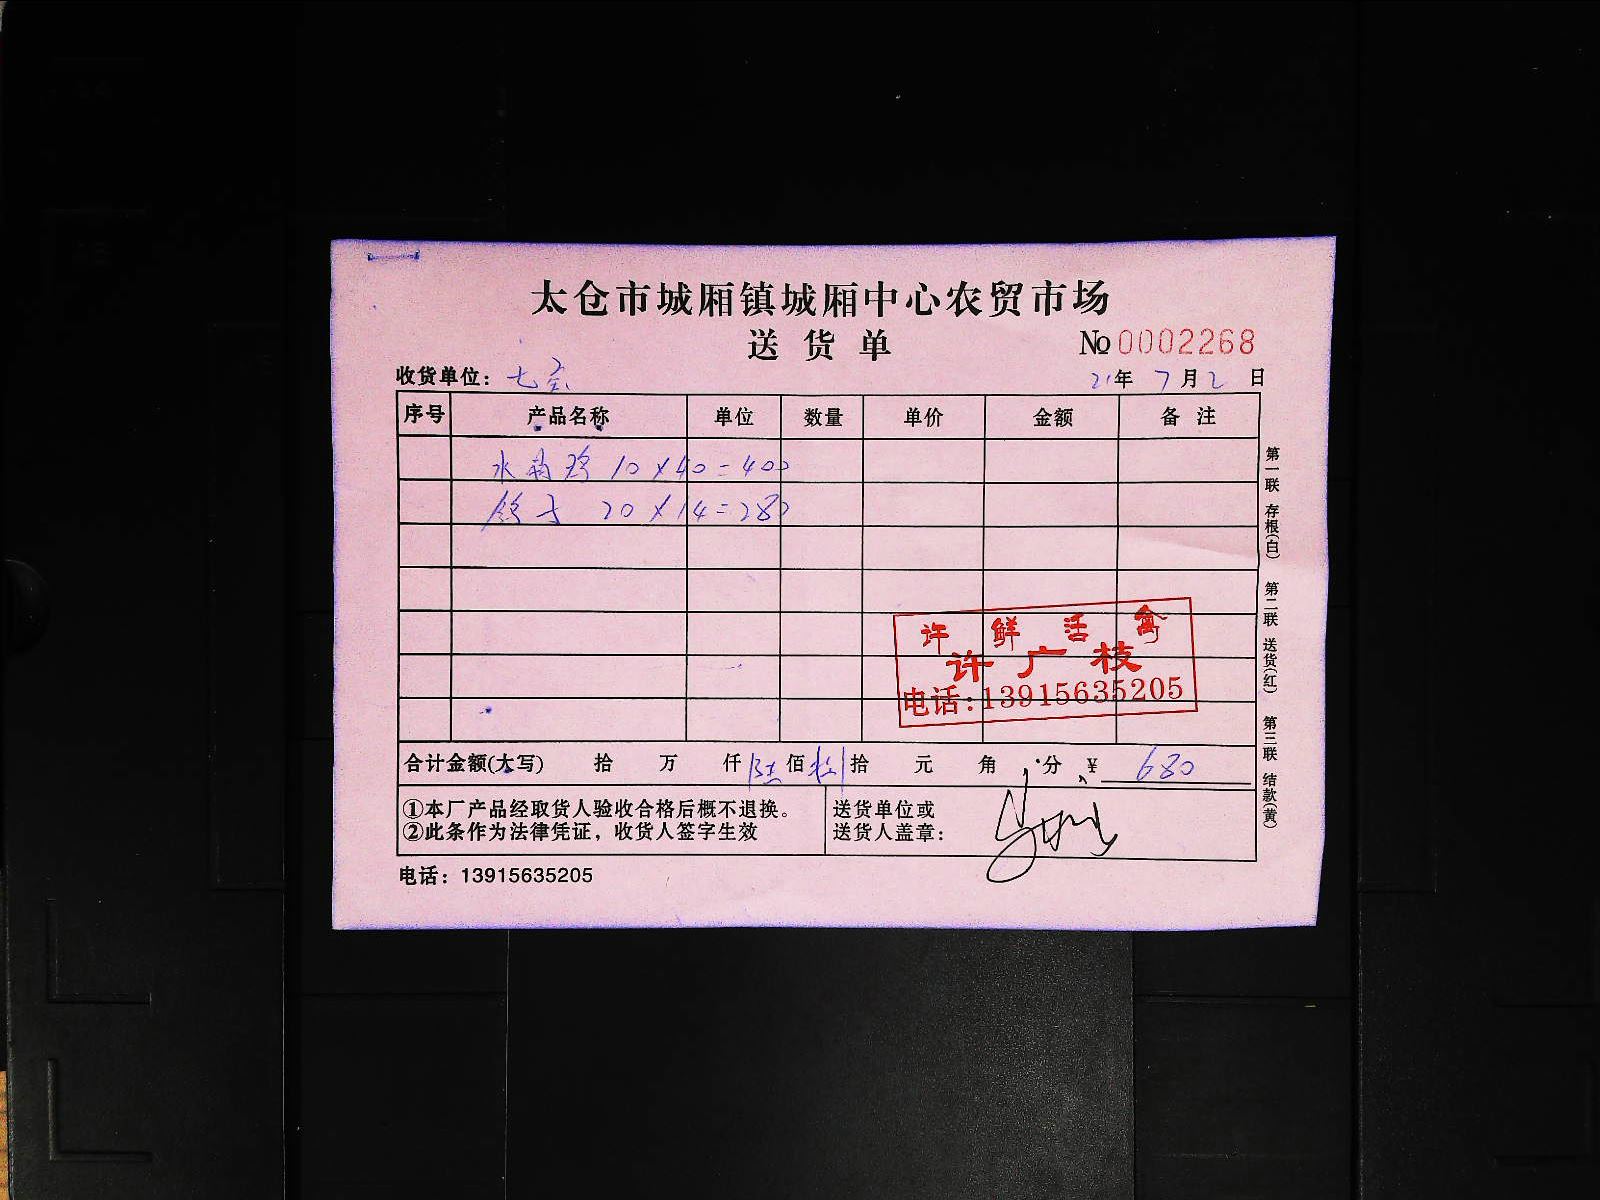 太仓市城厢镇城厢中心农贸市场
送货单 № 0002268
收货单位: 七 21年 7月2日
序号 产品名称 单位 数量 单价 金额 备注
水 10×40=400
鸽子 20×14=280
许 鲜 活 禽
许广枝
电话:13915635205
合计金额(大写) 拾 万 仟 陆佰 捌拾 元 角 分 ¥ 680
①本厂产品经取货人验收合格后概不退换。
②此条作为法律凭证，收货人签字生效
送货单位或
送货人盖章:
电话: 13915635205
第一联 存根(白) 第二联 送货(红) 第三联 结款(黄)